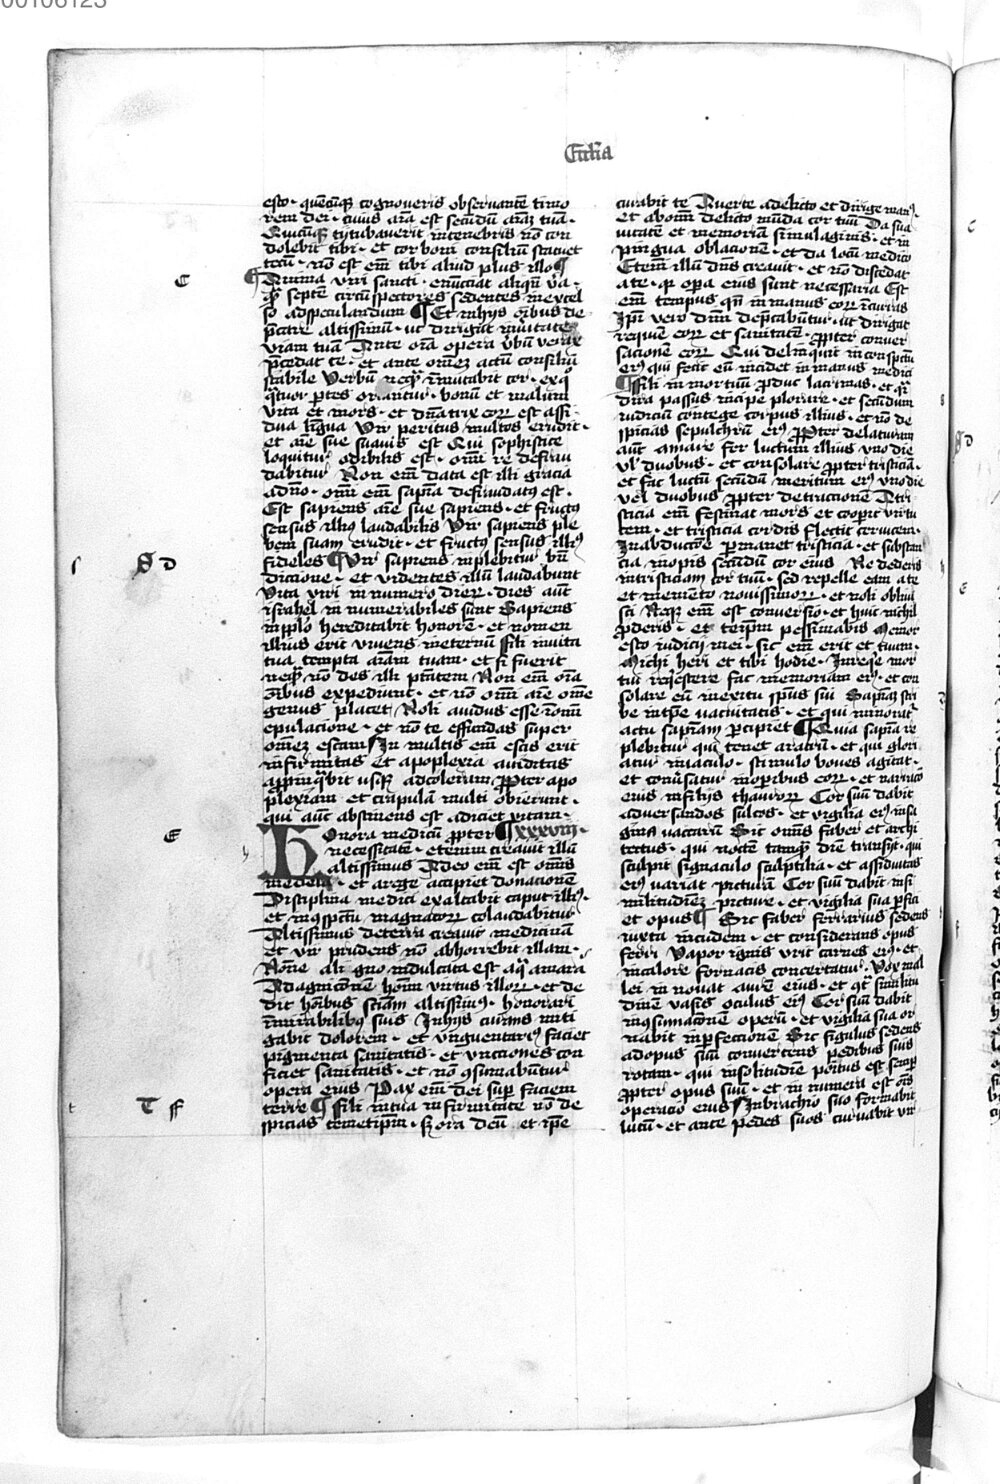 00106123
Eccl'ia
esto · quēcūqꝫ cognoveris observantē timo
rem dei · cuius aīa est secūdū aīaꝫ tuā ·
Quicūqꝫ tytubaverit in tenebris nō con
dolebit tibi · et cor boni consilii statuet
tecū · nō est em̄ tibi aliud plus illo ¶
Anima viri sancti · enūciat aliqn̄ v̄a ·
qꝫ septē circūspectores sedentes in excel
so ad speculandum ¶ Et in hijs oībus de
p̄care altissimū · ut dirigat in v̄itate
viam tuā Ante oīa opera v̄bū verax
p̄cedat te · et ante om̄eꝫ actū consiliū
stabile Verbū neqꝫ īmutabit cor · ex qͦ
q̄tuor p̄tes oriantur · bonū et malum
vita et mors · et dn̄atrix eoꝝ est assi
dua lingua Vir peritus multos erudit ·
et aīe sue suavis est Qui sophistice
loquitur odibilis est · om̄i re defrau
dabitur Non em̄ data est illi gracia
a dn̄o · om̄i em̄ sapīa defraudatꝰ est ·
Est sapiens aīe sue sapiens · et fructꝰ
sensus illiꝰ laudabilis Vir sapiens ple
bem suam erudit · et fructꝰ sensus illiꝰ
fideles ¶ Vir sapiens inplebitur bn̄
dictione · et videntes illū laudabunt
Vita viri in numero dierꝝ · dies aūt
israhel innumerabiles sunt Sapiens
in pplo hereditabit honorē · et nomen
illius erit vivens in eternū Fili in vita
tua tempta aīam tuam · et si fuerit
neqꝫ nō des illi ptātem Non em̄ oīa
oībus expediunt · et nō om̄i aīe om̄e
genus placet Noli avidus esse ī om̄i
epulacione · et nō te effundas super
om̄eꝫ escam In multis em̄ escis erit
infirmitas Et apoplexia aviditas
appīnq̄bit usqꝫ ad coleram ꝓpter apo
plexiam et crapulā multi obierunt ·
qui aūt abstinens est adiciet vitam ·
Honora medicū ꝓpter ¶ xxxviii ·
necessitatē · etenim creavit illū
altissimus A deo em̄ est om̄is
medela · et a rege accipiet donacionē
Disciplina medici exaltabit caput illiꝰ ·
et in ꝯspectu magnatoꝝ collaudabitur
Altissimus de terra creavit medicinā
et vir prudens nō abhorrebit illam ·
Nōne a ligno indulcata est aq̄ amara
Ad agnicōnē hoīm virtus illoꝝ · et de
dit hoībus sciam altissimꝰ · honorari
in mirabilibꝰ suis In hijs curans miti
gabit dolorem · et ungentariꝰ faciet
pigmenta sanitatis · et unctiones con
ficiet sanitatis · et nō ꝯsumabuntur
opera eius Pax em̄ dei sup faciem
terre ¶ Fili in tua infirmitate nō de
spicias temetip̄m · Sꝫ ora deū et ip̄e
C
s D
E
T F
curabit te Averte a delicto et dirige manꝰ ·
et ab om̄i delicto mūda cor tuū Da sua
vitatē et memoriā similaginis · et in
pingua oblacionē · et da locū medico
Etem̄ illū dn̄s creavit · et nō discedat
a te · qꝛ opa eius sunt necessaria Est
em̄ tempus qn̄ in manus eoꝝ incurras
Ip̄i vero dn̄m dep̄cabūtur · ut dirigat
requiē eoꝝ et sanitatē · ꝓpter conver
sacionē eoꝝ Qui delinquit in conspectu
eiꝰ qui fecit eū incidet in manus medici
¶ Fili in mortuū ꝓduc lacrimas · et q̄si
dira passus incipe plorare · et secūdum
iudiciū contege corpus illius · et nō de
spicias sepulchrū eiꝰ ꝓpter delaturam
aūt amare fer luctum illius uno die
vl' duobus · et consolare ꝓpter tristiciā ·
et fac luctū secūdū meritum eiꝰ uno die
vel duobus ꝓpter detractionē A tri
sticia em̄ festinat mors et cooperit virtu
tem · et tristicia cordis flectit cervicem ·
In abductōe permanet tristicia · et substan
cia inopis secūdū cor eius Ne dederis
in tristiciam cor tuū · sed repelle eam a te
et memēto novissimoꝝ · et noli oblivi
sci Neqꝫ em̄ est conversio · et huic nichil
ꝓderis · et teip̄m pessimabis Memor
esto iudicij mei · sic em̄ erit et tuum ·
Michi heri et tibi hodie · In requie mor
tui req̄escere fac memoriam eiꝰ · et con
solare eū in exitu spūs sui Sapīam scri
be in tp̄e vacuitatis · et qui minorat
actu sapīam percipiet ¶ Quia sapīa re
plebitur qui tenet aratrū · et qui glori
atur in iaculo · stimulo boves agitat ·
et conv̄satur in operibus eoꝝ · et narracō
eius in filijs thauroꝝ Cor suū dabit
ad versandos sulcos · et vigilia eiꝰ in sa
gina vaccarū Sic om̄is faber et archi
tectus · qui noctē tamqꝫ diē transijt · qui
sculpit signaculo sculptilia · et assiduitas
eiꝰ variat picturā Cor suū dabit in si
militudinē picture · et vigilia sua p̄fici
et opus ¶ Sic faber ferrarius sedens
iuxta incudem · et considerans opus
ferri Vapor ignis urit carnes eiꝰ · et
in calore fornacis concertatur · Vox mal
lei innovat aurē eius · et ꝯt̄ similitu
dinē vasis oculus eiꝰ Cor suū dabit
in ꝯsumacionē operū · et vigilia sua or
nabit in perfectionē Sic figulus sedens
ad opus suū convertens pedibus suis
rotam · qui in solitudīe positus est semꝑ
ꝓpter opus suū · et in numera est om̄is
operacio eius In brachio suo formabit
lutū · et ante pedes suos curvabit vir